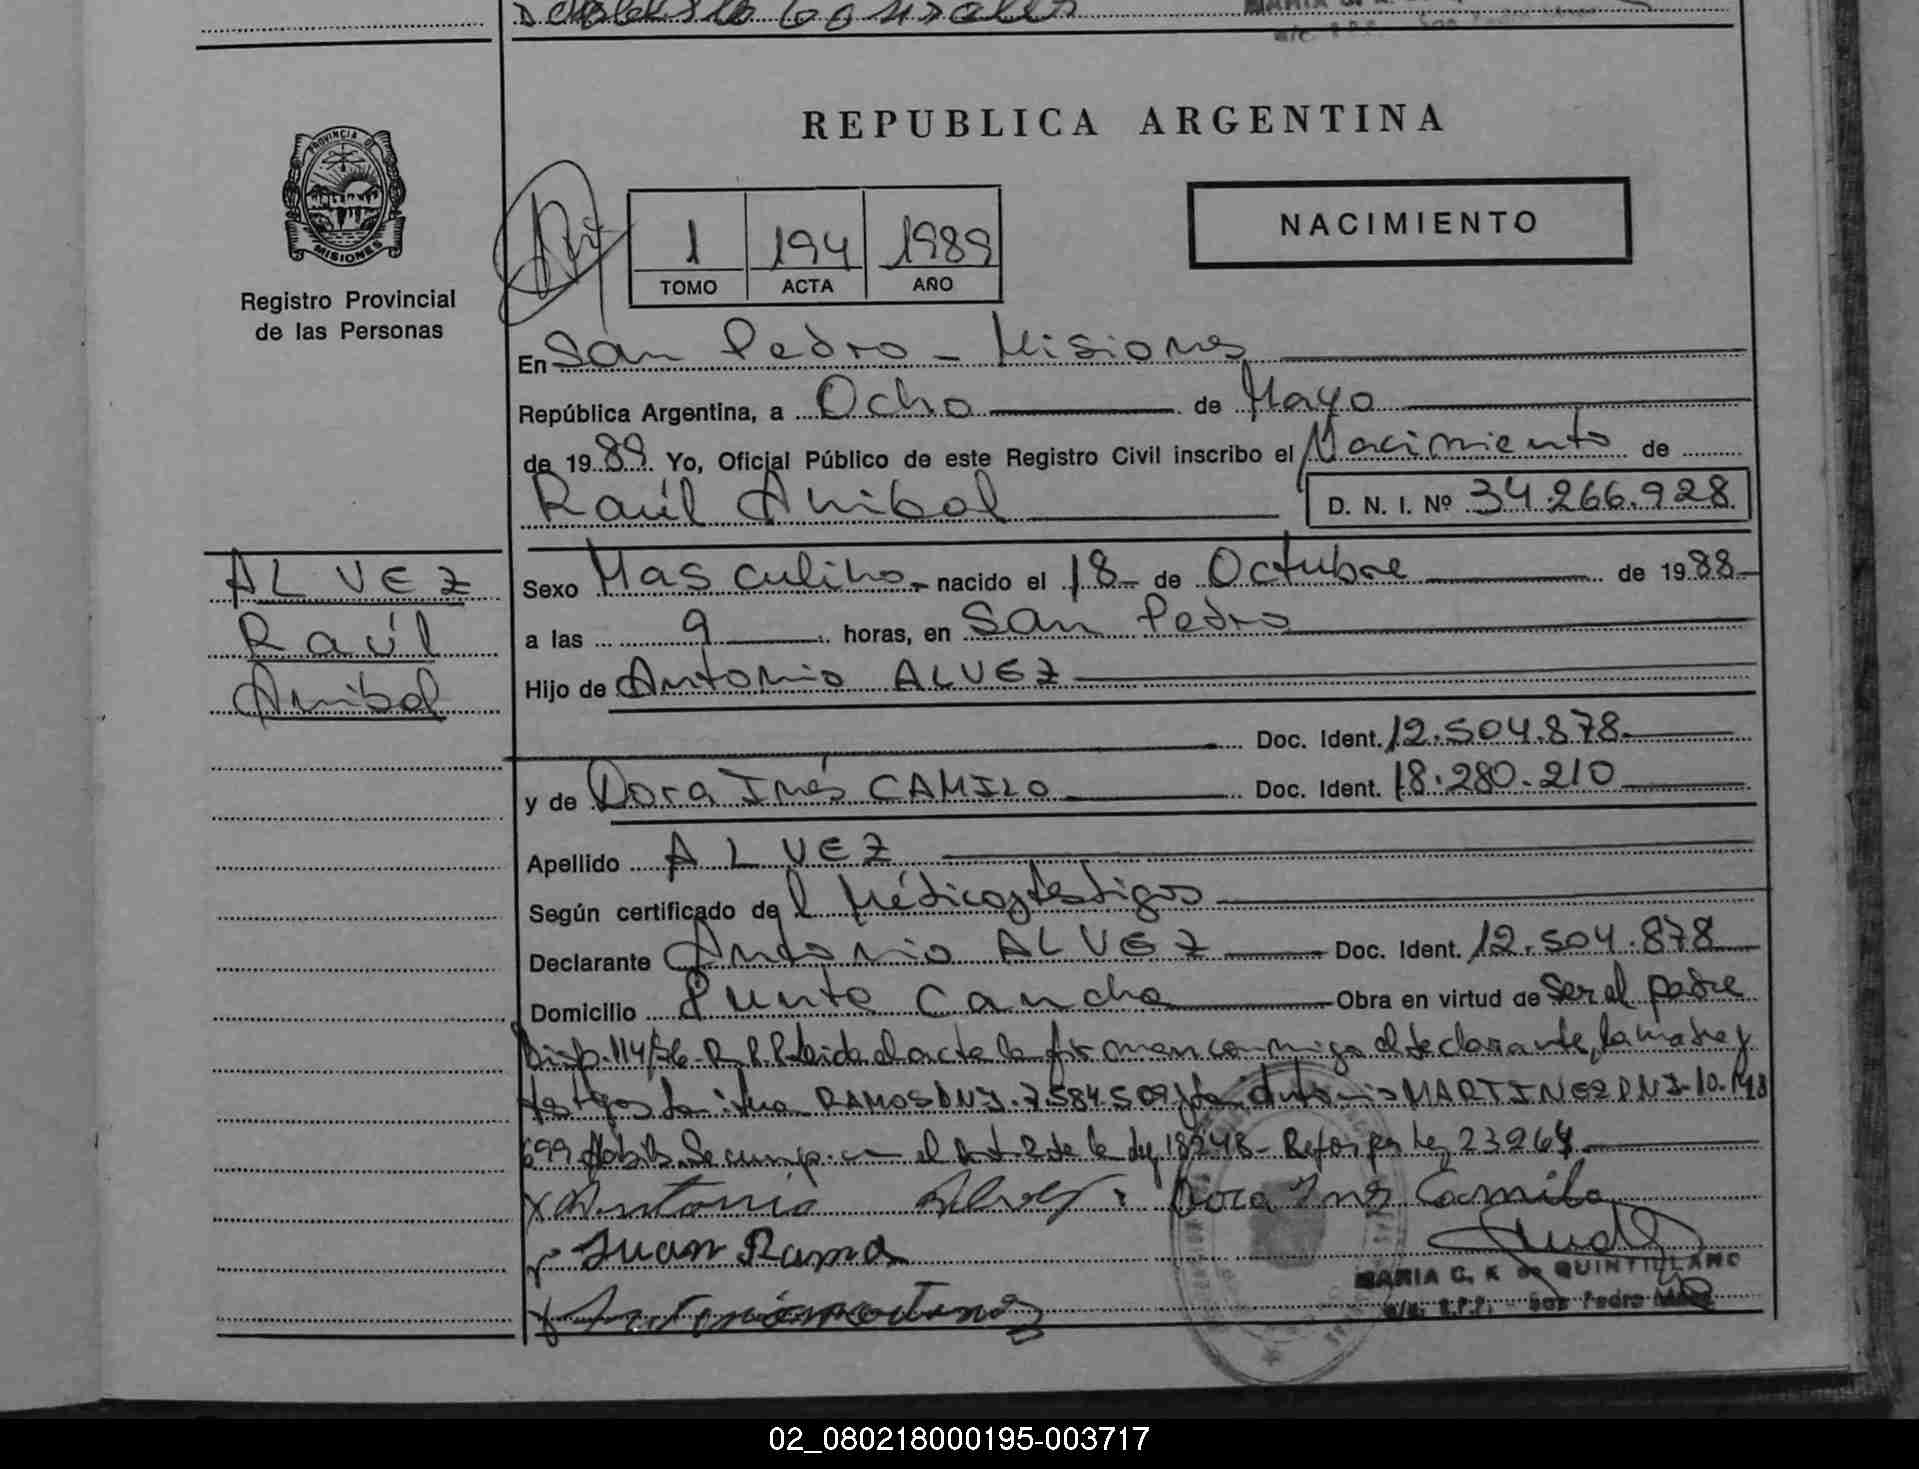 REPUBLICA ARGENTINA
PROVINCIA DE
MISIONES
Registro Provincial
de las Personas
1 194 1989
TOMO ACTA AÑO
NACIMIENTO
En San Pedro - Misiones
República Argentina, a Ocho de Mayo
de 1989 Yo, Oficial Público de este Registro Civil inscribo el Nacimiento de
Raúl Anibal D. N. I. Nº 34.266.928
ALVEZ
Raúl
Anibal
Sexo Masculino - nacido el 18 de Octubre de 1988
a las 9 horas, en San Pedro
Hijo de Antonio ALVEZ
Doc. Ident. 12.504.878
y de Dora Inés CAMILO Doc. Ident. 18.280.210
Apellido ALVEZ
Según certificado del Médico y testigos
Declarante Antonio ALVEZ Doc. Ident. 12.504.878
Domicilio Punta Cancha Obra en virtud de ser el padre
Disp. 114/76 R.P.P. Leida el acta la firman conmigo el declarante, la madre y
testigos RAMOS DNI. 7.584.509 y Antonio MARTINEZ DNI 10.148
699 Se el Art. 2 de la Ley 18248 - Refor por Ley 23264
x Antonio Alvez Dora Ines Camilo
Juan Ramo
MARIA G. K de QUINTILLANO
a/c. R.P.P. - San Pedro Mnes
02_080218000195-003717